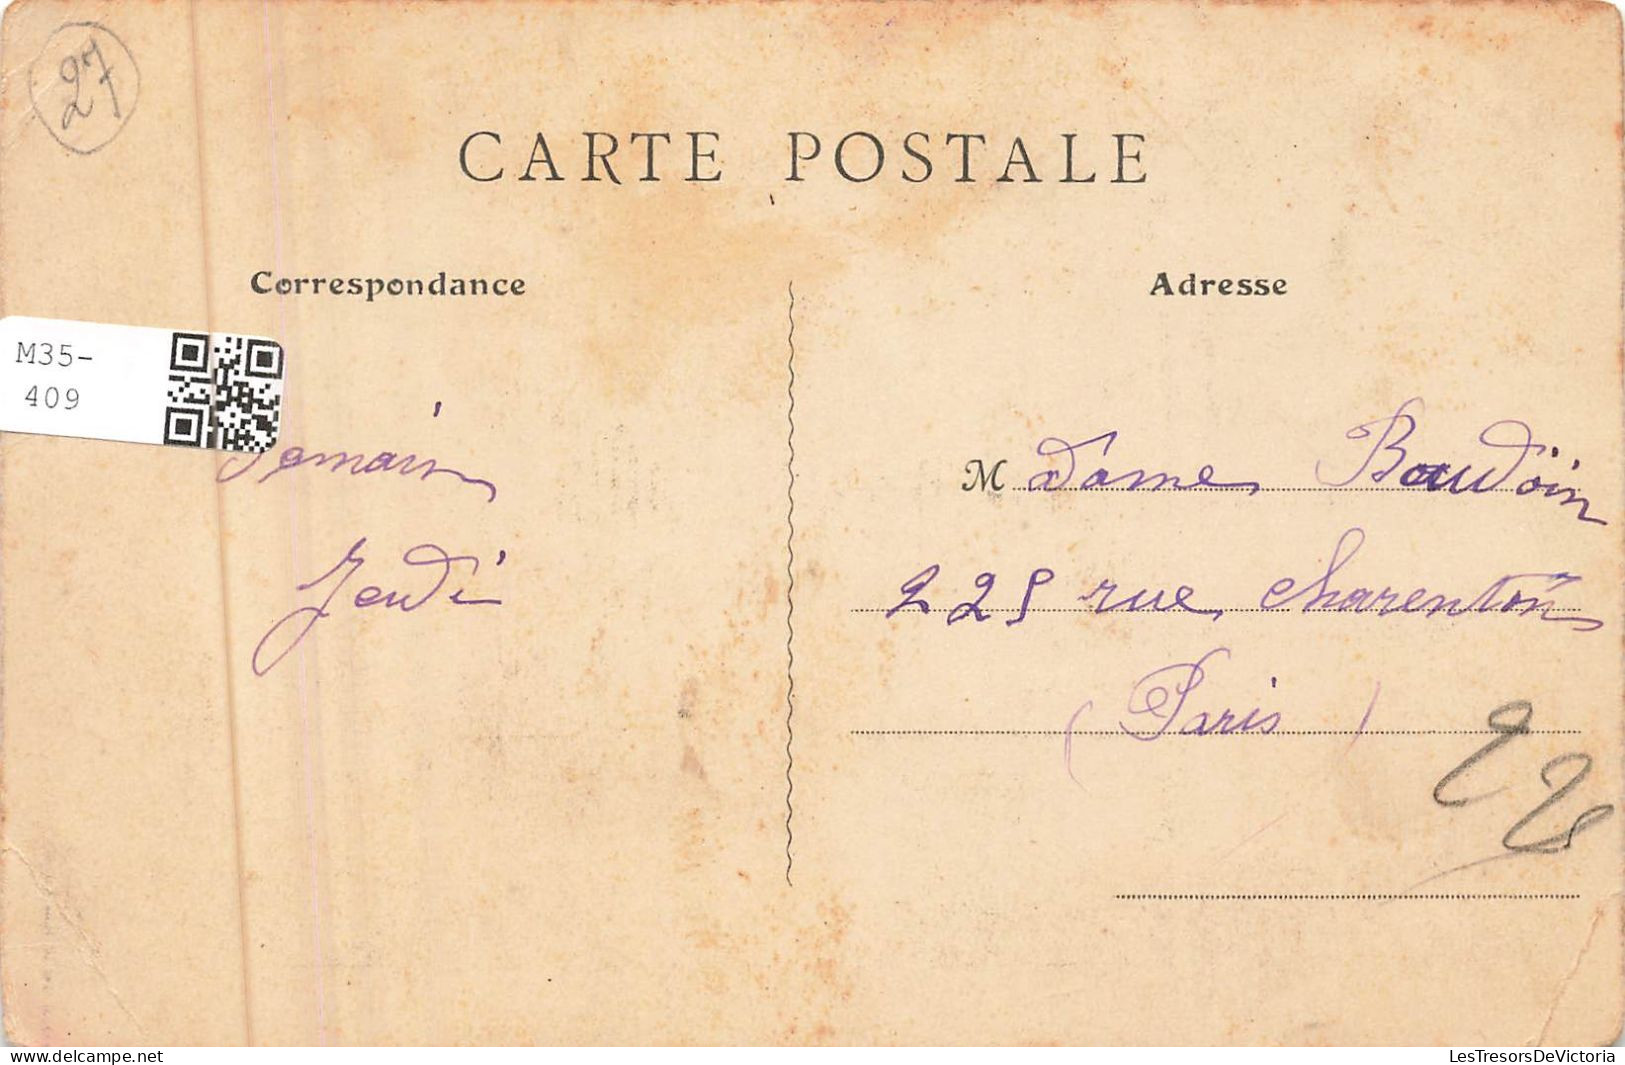 27
CARTE POSTALE
Correspondance
Adresse
M35-
409
Demain
Jeudi
Madame Baudoin
225 rue Charenton
(Paris)
website: www.delcampe.net
LesTresorsDeVictoria